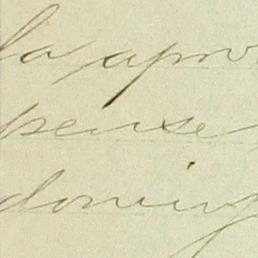 la apro
pense
doming